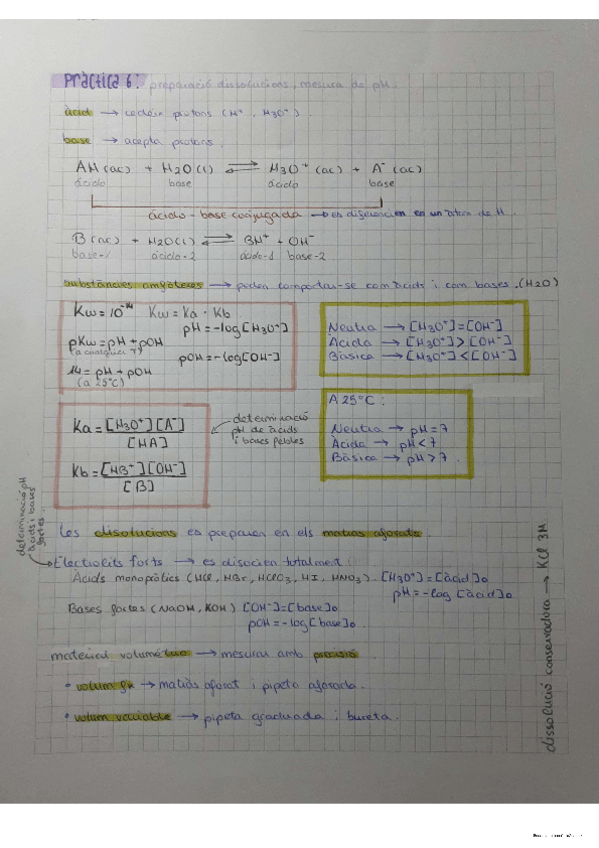 Pràctica 6: preparació dissolucions, mesura de pH.
àcid → cedeix protons (H⁺, H₃O⁺).
base → acepta protons.
AH(ac) + H₂O(l) ⇌ H₃O⁺(ac) + A⁻(ac)
àcido base àcido base
àcido-base conjugada → es diferencien en un àtom de H.
B(ac) + H₂O(l) ⇌ BH⁺ + OH⁻
base-1 àcido-2 àcido-1 base-2
substàncies amfòteres → poden comportar-se com àcids i com bases. (H₂O)
Kw = 10⁻¹⁴ Kw = Ka · Kb
pH = -log[H₃O⁺]
pKw = pH + pOH
(a qualsevol T)
pOH = -log[OH⁻]
14 = pH + pOH
(a 25°C)
Neutra → [H₃O⁺] = [OH⁻]
Àcida → [H₃O⁺] > [OH⁻]
Bàsica → [H₃O⁺] < [OH⁻]
A 25°C:
Neutra → pH = 7
Àcida → pH < 7
Bàsica → pH > 7
Ka = [H₃O⁺][A⁻]
[HA]
Kb = [HB⁺][OH⁻]
[B]
determinació
pH de àcids
i bases febles
determinació pH
àcids i bases
fortes
Les disolucions es preparen en els matràs aforats.
Electròlits forts → es disocien totalment:
Àcids monopròtics (HCl, HBr, HClO₃, HI, HNO₃). [H₃O⁺] = [àcid]₀
pH = -log [àcid]₀
Bases fortes (NaOH, KOH) [OH⁻] = [base]₀
pOH = -log[base]₀
material volumètric → mesurar amb precisió
• volum fix → matràs aforat i pipeta aforada.
• volum variable → pipeta graduada i bureta.
dissolució conservadora → KCl 3M